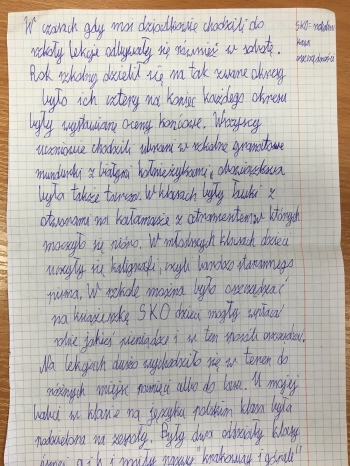 W czasach gdy moi dziadkowie chodzili do
szkoły lekcje odbywały się również w sobotę.
Rok szkolny dzielił się na tak zwane okresy
było ich cztery na koniec każdego okresu
były wystawiane oceny końcowe. Wszyscy
uczniowie chodzili ubrani w szkolne granatowe
mundurki z białymi kołnierzykami, obowiązkowa
była także tarcza. W klasach były ławki z
otworami na kałamarze z atramentem w których
moczyło się pióro. W młodszych klasach dzieci
uczyły się kaligrafii, czyli bardzo starannego
pisma. W szkole można było oszczędzać
na książeczkę SKO dzieci mogły wpłacać
sobie jakieś pieniądze i w ten sposób oszczędzać.
Na lekcjach dużo wychodziło się w teren do
różnych miejsc pamięci albo do lasu. U mojej
babci w klasie na języku polskim klasa była
podzielona na zespoły. Były dwa oddziały klasy
i miały nazwy "krakowiacy i górale"
SKO = szkolna
kasa
oszczędności